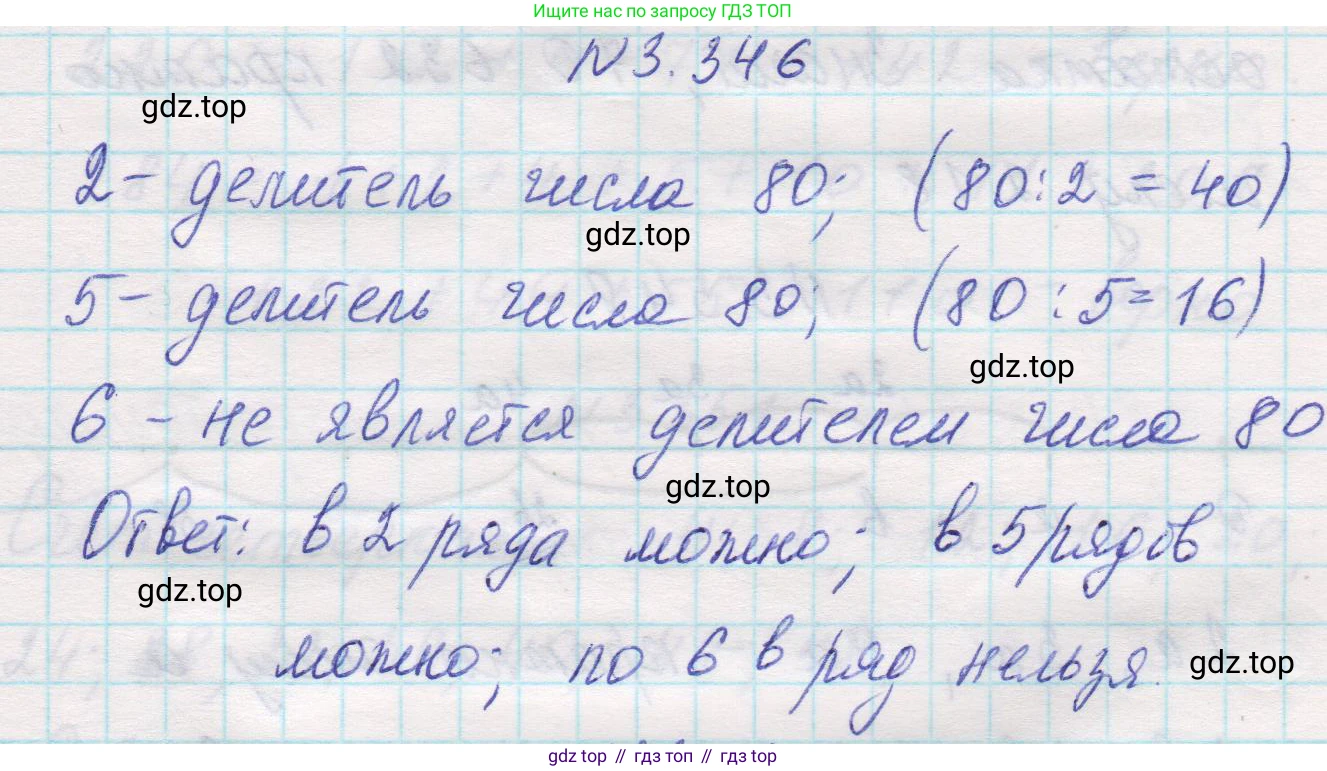 Ищите нас по запросу ГДЗ ТОП
N 3.346
gdz.top
2 - делитель числа 80; (80:2 = 40)
gdz.top
5 - делитель числа 80; (80:5 = 16)
gdz.top
6 - не является делителем числа 80
gdz.top
Ответ: в 2 ряда можно; в 5 рядов
gdz.top
можно; по 6 в ряд нельзя.
gdz.top
gdz top // гдз топ // gdz top